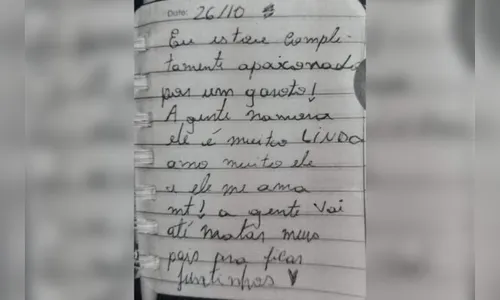 Date: 26/10
Eu estou comple-
tamente apaixonada
por um garoto!
A gente namora
ele é muito LINDO
amo muito ele
e ele me ama
mt! a gente vai
até matar meus
pais pra ficar
juntinhos ♥